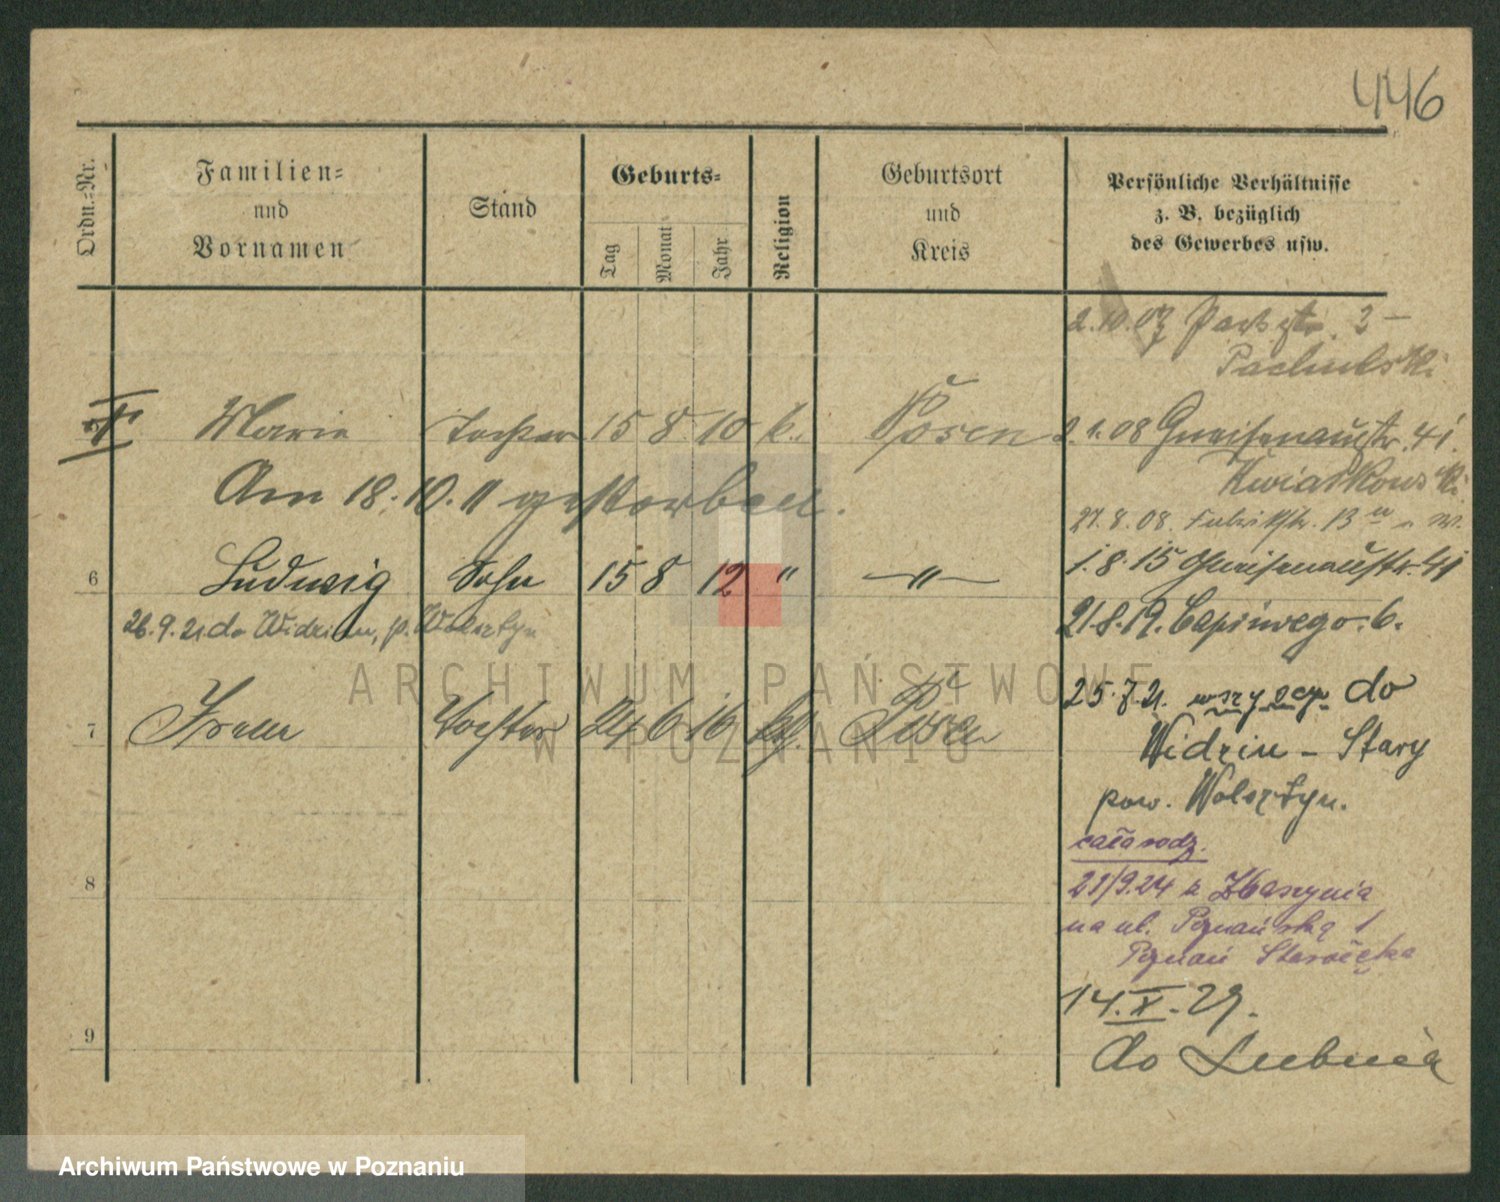 446
Ordn.-Nr.
Familien-
und
Vornamen
Stand
Geburts-
Tag
Monat
Jahr
Religion
Geburtsort
und
Kreis
Persönliche Verhältnisse
z. B. bezüglich
des Gewerbes usw.
2.10.07 3 –
Marie Tochter 15 8 10 k. Posen
2.1.08 Gneisenaustr. 41.
Am 18.10.11 gestorben.
Kwiatkowski
27.8.08. Fabrikstr. 13
6 Ludwig Sohn 15 8 12 " —"—
1.8.15 Gneisenaustr. 41
26.9.21 do Widzim, p. Wolsztyn
21.8.19. 6.
7 Irene Tochter 24 6 16 Posen
25.7.21. wszyscy do
Widzim – Stary
pow. Wolsztyn.
cała rodz.
8
21/9.24 z Zbąszynia
na ul. Poznańską 1
Poznań Starołęka
14.X.29.
9
do Lubonia
ARCHIWUM PAŃSTWOWE
W POZNANIU
Archiwum Państwowe w Poznaniu